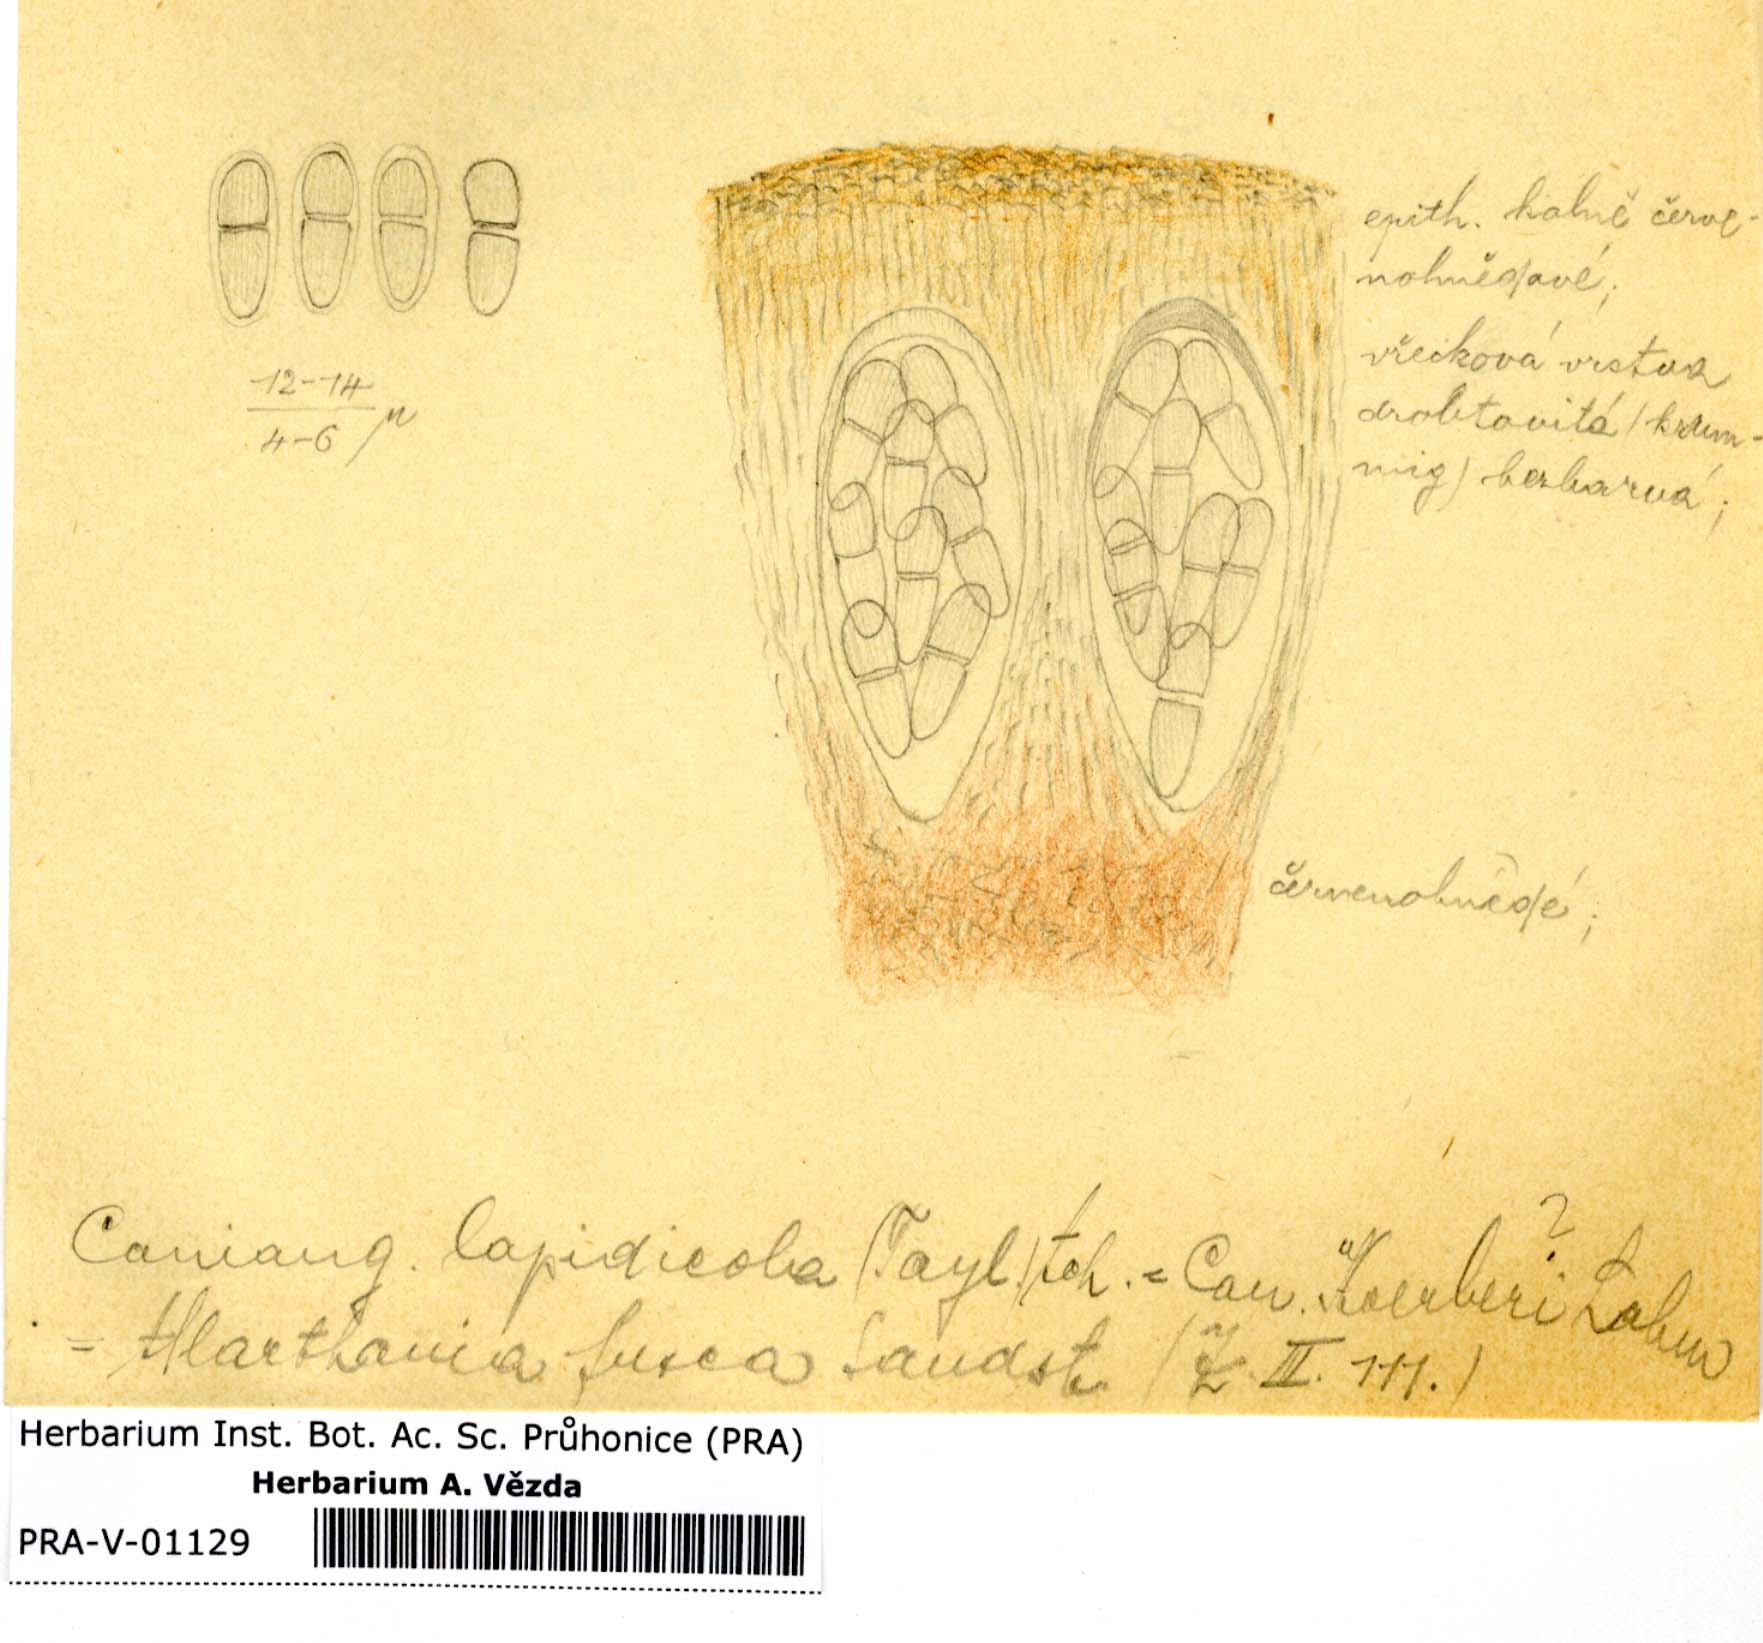 12-14
4-6 µ
epith. kalně červe-
nohnědavé;
vřecková vrstva
drobtovitá (krüm-
mig) bezbarvá;
červenohnědé;
Coniang. lapidicola (Tayl.) tch. = Con. Koerberi ? Lahm
= Allarthonia fusca Sandst. (Z. III. 111.)
Herbarium Inst. Bot. Ac. Sc. Průhonice (PRA)
Herbarium A. Vězda
PRA-V-01129